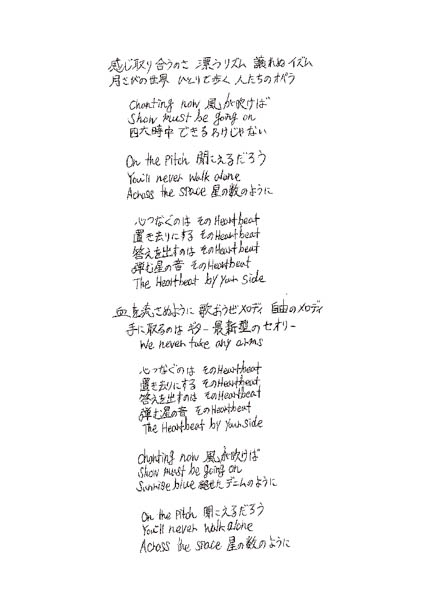 感じ取り合うのさ 漂うリズム 譲れぬイズム
月さびの世界 ひとりで歩く 人たちのオペラ
Chanting now 風が吹けば
Show must be going on
四六時中 できるわけじゃない
On the Pitch 聞こえるだろう
You'll never walk alone
Across the space 星の数のように
心つなぐのは そのHeartbeat
置き去りにする そのHeartbeat
答えを出すのは そのHeartbeat
弾む星の音 そのHeartbeat
The Heartbeat by Your side
血を流さぬように 歌おうぜメロディ 自由のメロディ
手に取るのは ギター 最新型のセオリー
We never take any arms
心つなぐのは そのHeartbeat
置き去りにする そのHeartbeat
答えを出すのは そのHeartbeat
弾む星の音 そのHeartbeat
The Heartbeat by Your side
Chanting now 風が吹けば
Show must be going on
Sunrise blue 褪せたデニムのように
On the Pitch 聞こえるだろう
You'll never walk alone
Across the space 星の数のように